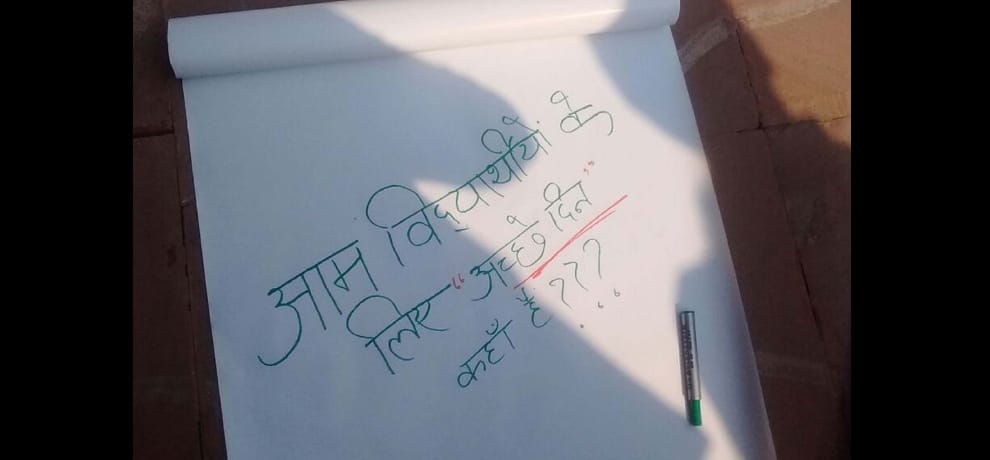 आम विद्यार्थीयों के
लिए “अच्छे दिन”
कहाँ है ???